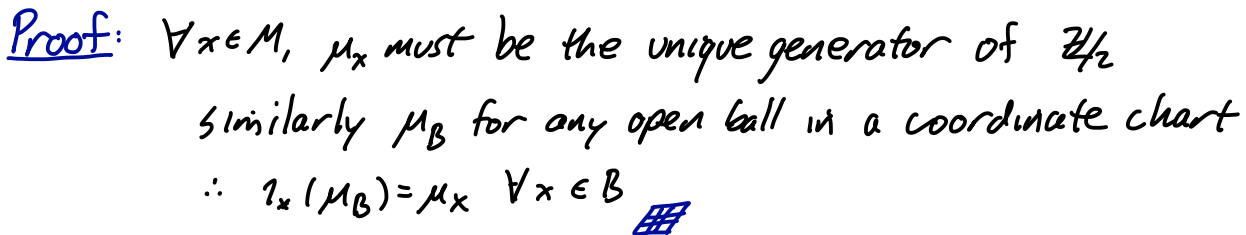 Proof: ∀x∈M, μₓ must be the unique generator of ℤ/2
similarly μ_B for any open ball in a coordinate chart
∴ ıₓ(μ_B)=μₓ ∀x∈B